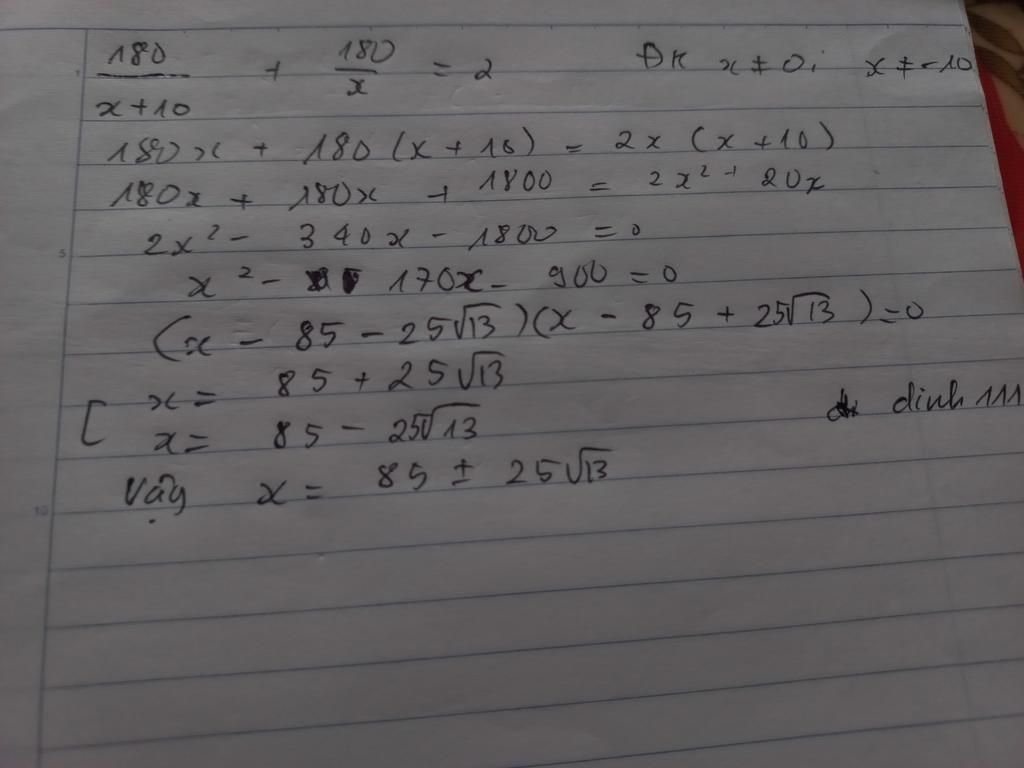 180/(x+10) + 180/x = 2 ĐK x ≠ 0; x ≠ -10
180x + 180(x + 10) = 2x (x + 10)
180x + 180x + 1800 = 2x² + 20x
2x² - 340x - 1800 = 0
x² - 170x - 900 = 0
(x - 85 - 25√13)(x - 85 + 25√13) = 0
[ x = 85 + 25√13
x = 85 - 25√13
dinh 111
Vậy x = 85 ± 25√13
5
10